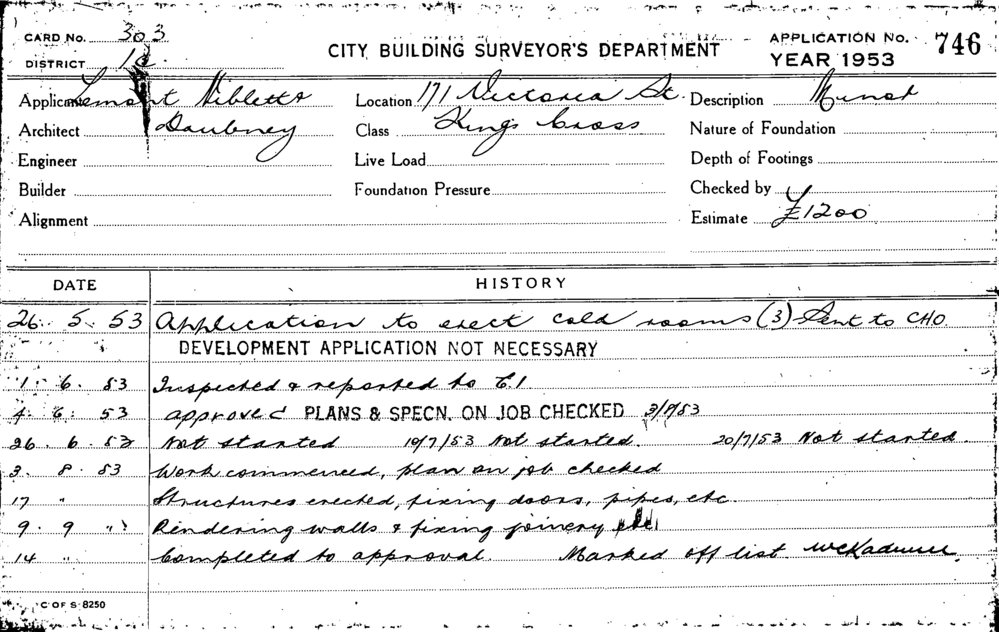 CARD No. 303
DISTRICT 1d.
CITY BUILDING SURVEYOR'S DEPARTMENT
APPLICATION No. 746
YEAR 1953
Applicant Lemont Niblett &
Architect Daubney
Engineer
Builder
Alignment
Location 171 Victoria St.
Class Kings Cross
Live Load
Foundation Pressure
Description
Nature of Foundation
Depth of Footings
Checked by
Estimate £1200
DATE HISTORY
26. 5. 53 Application to erect cold rooms (3) Sent to CHO.
DEVELOPMENT APPLICATION NOT NECESSARY
1. 6. 53 Inspected & reported to C.I
4. 6. 53 Approved PLANS & SPECN. ON JOB CHECKED 3/8/53
26. 6. 53 Not started 10/7/53 Not started. 20/7/53 Not started.
3. 8. 53 Work commenced, plan on job checked
17 " Structures erected, fixing doors, pipes, etc.
9. 9 " Rendering walls & fixing joinery
14 " Completed to approval. Marked off list.
C OF S 8250